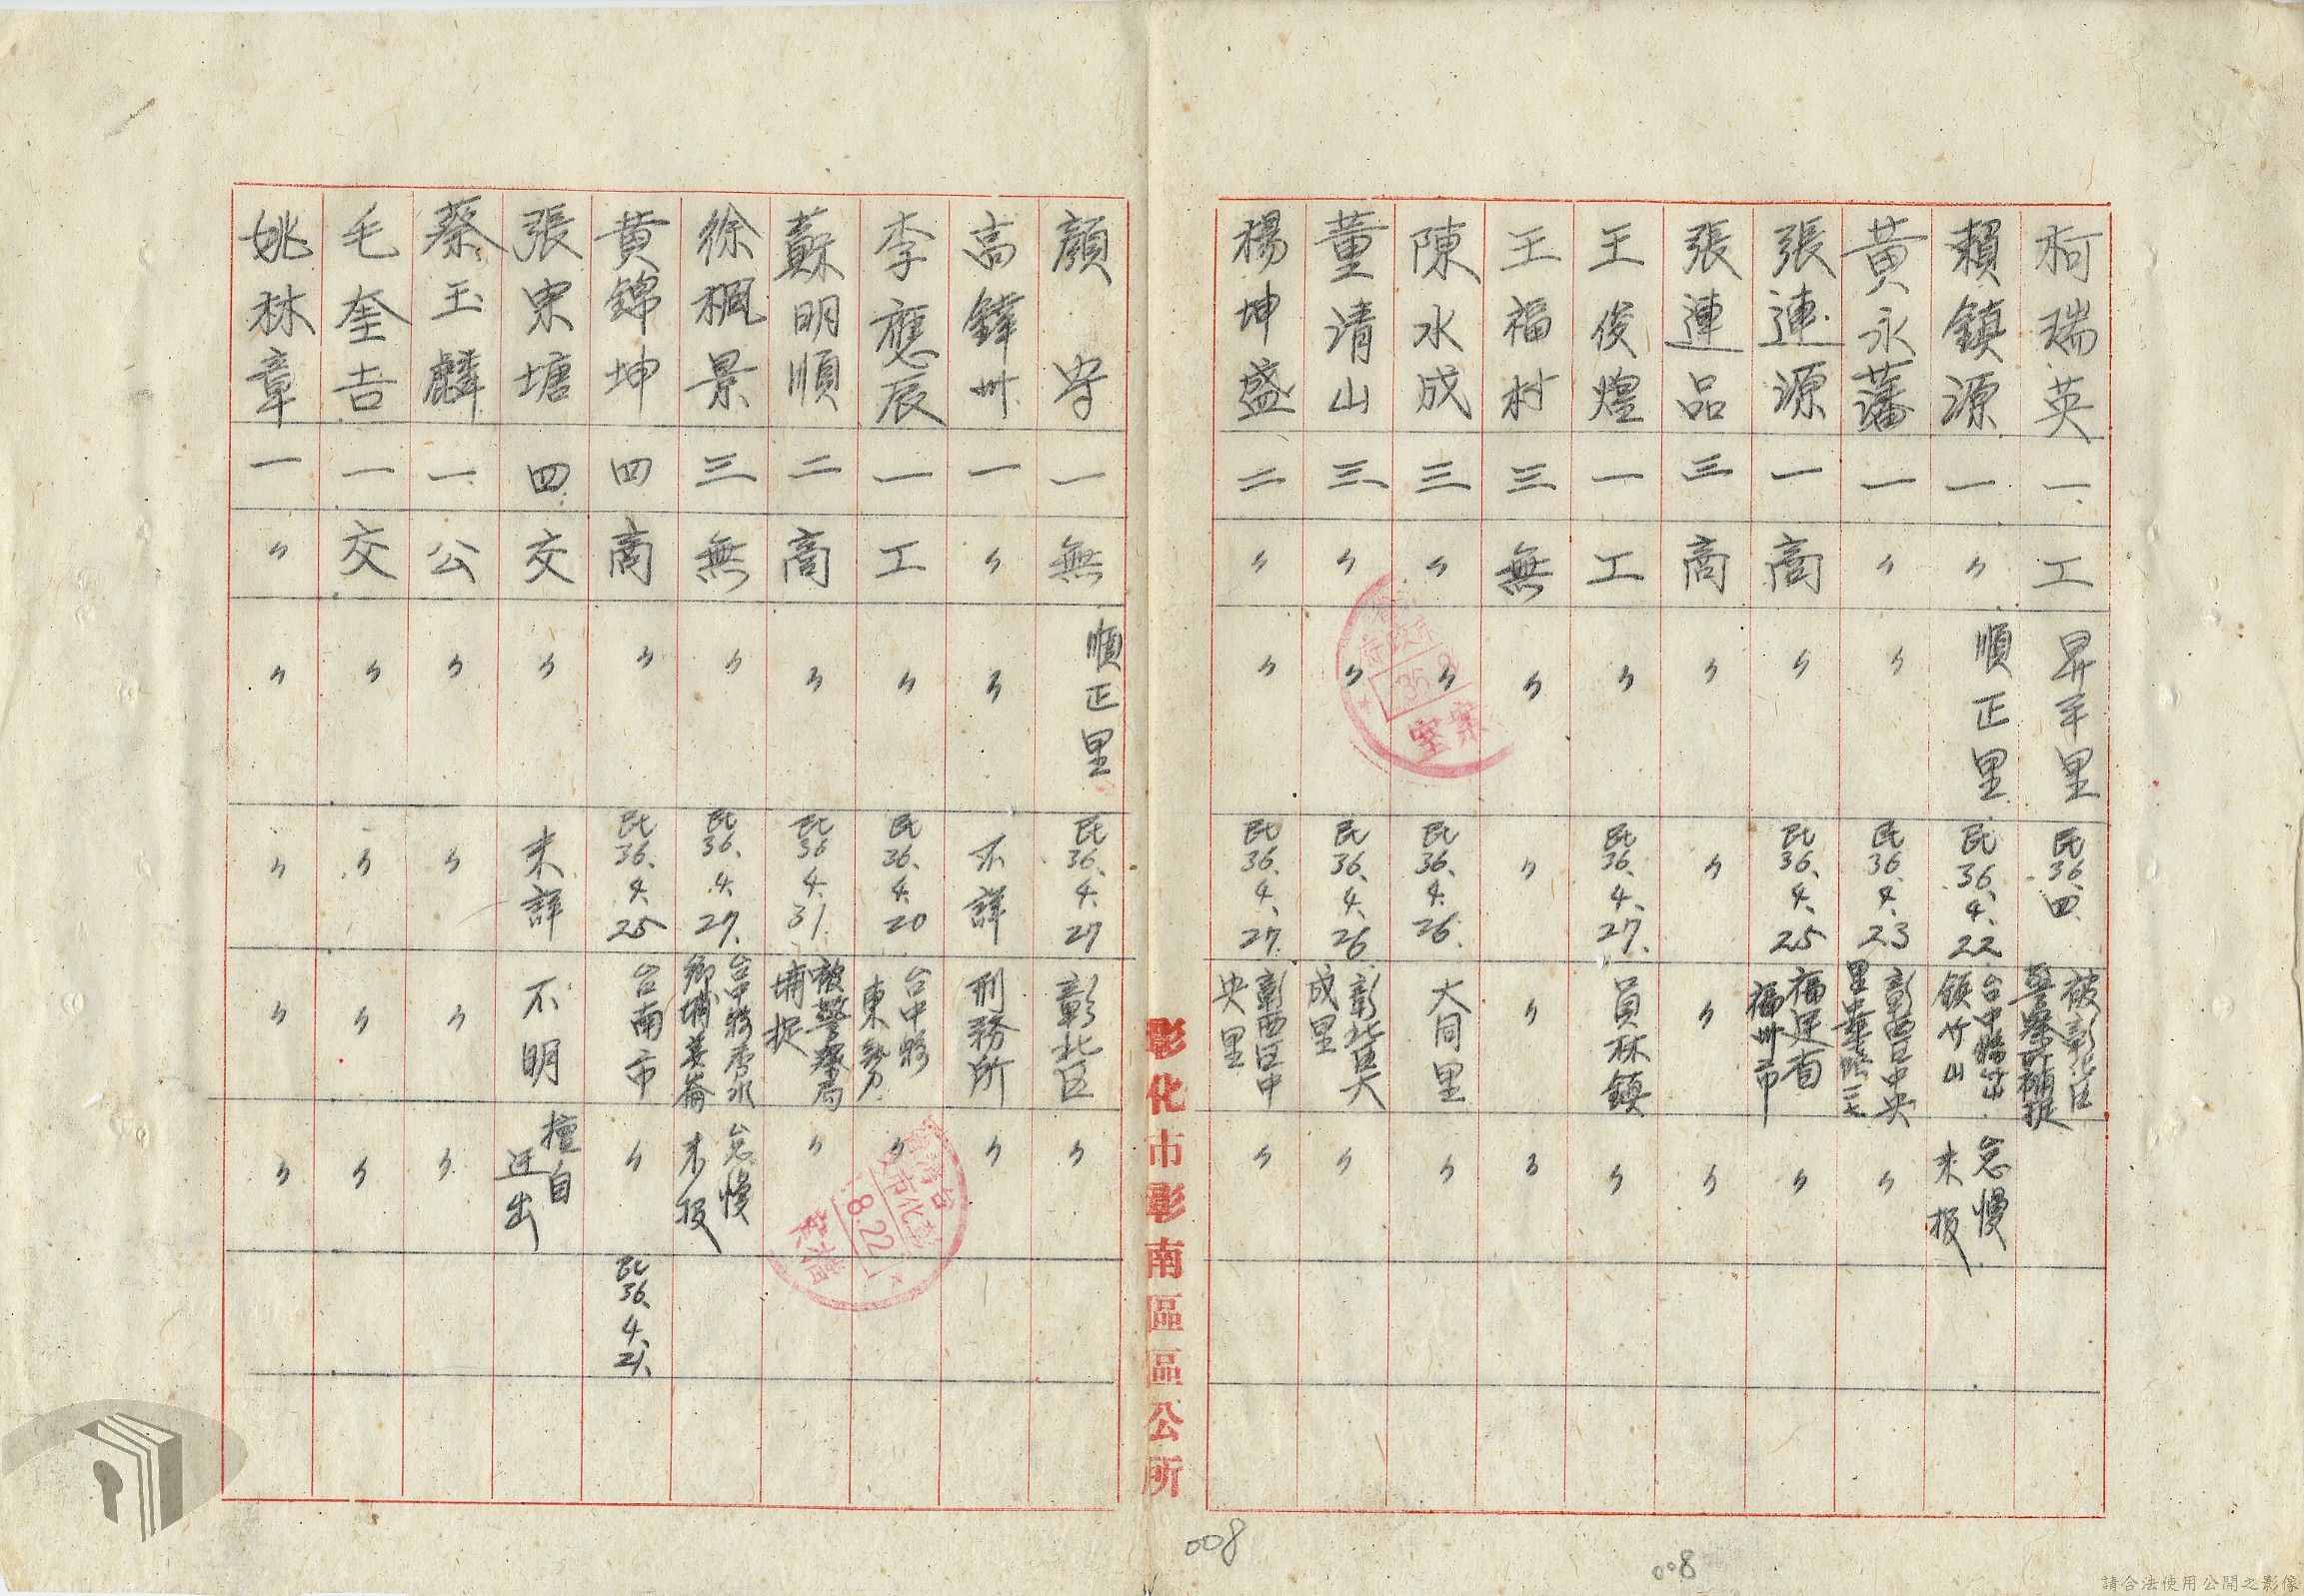 柯瑞英 一 工 昇平里 民36.四 被彰化區警察所捕捉
賴鎮源 一 〃 順正里 民36.4.22 台中縣竹山鎮竹山 怠慢未报
黃永藩 一 〃 〃 民36.4.23 彰西區中央里中華路一七 〃
張連源 一 商 〃 民36.4.25 福建省福州市 〃
張連品 三 商 〃 〃 〃 〃
王俊煌 一 工 〃 民36.4.27. 員林鎮 〃
王福村 三 無 〃 〃 〃 〃
陳水成 三 〃 〃 民36.4.26. 大同里 〃
董清山 三 〃 〃 民36.4.26 彰北區大成里 〃
楊坤盛 二 〃 〃 民36.4.27. 彰西區中央里 〃
彰化市彰南區區公所
顏守 一 無 順正里 民36.4.27 彰北区 〃
高鋒州 一 〃 〃 不詳 刑務所 〃
李應辰 一 工 〃 民36.4.20 台中縣東勢 〃
蘇明順 二 商 〃 民36.4.31 被警察局捕捉 〃
徐楓景 三 無 〃 民36.4.27. 台中縣秀水鄉埔姜崙 怠慢未报
黄錦坤 四 商 〃 民36.4.25 台南市 〃 民36.4.21.
張東塘 四 交 〃 未詳 不明 擅自迁出
蔡玉麟 一 公 〃 〃 〃 〃
毛奎吉 一 交 〃 〃 〃 〃
姚林章 一 〃 〃 〃 〃 〃
8.22
008
008
請合法使用公開之影像